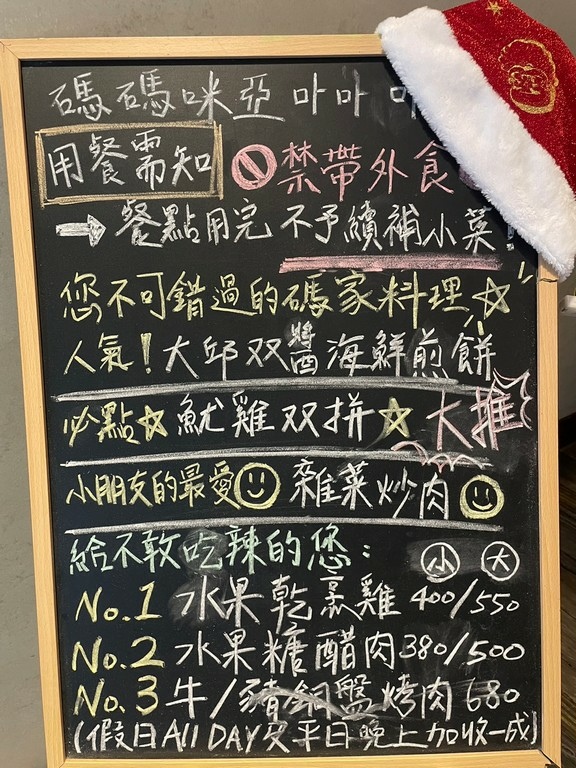 碼碼咪亞 卟卟
用餐需知 🚫禁帶外食
➡ 餐點用完 不予續補小菜!
您不可錯過的碼家料理☆
人氣!大邱双醬海鮮煎餅
必點☆魷雞双拼☆大推
小朋友的最愛☺雜菜炒肉☺
給不敢吃辣的您: 小 大
No.1 水果乾烹雞 400/550
No.2 水果糖醋肉 380/500
No.3 牛/豬銅盤烤肉 680
(假日All DAY 平日晚上加收一成)